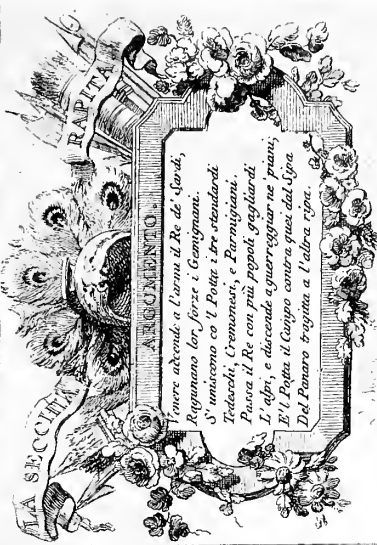 LA SECCHIA RAPITA
ARGOMENTO.
Venere accende a l'armi il Re de' Sardi,
Ragunano lor forze i Gemignani.
S'uniscono co'l Potta i tre stendardi
Tedeschi, Cremonesi, e Parmigiani.
Passa il Re con più popoli gagliardi
L'alpi, e discende a guerreggiar ne' piani;
E'l Potta il Campo contra quei dal Sipa
Del Panaro tragitta a l'altra ripa.